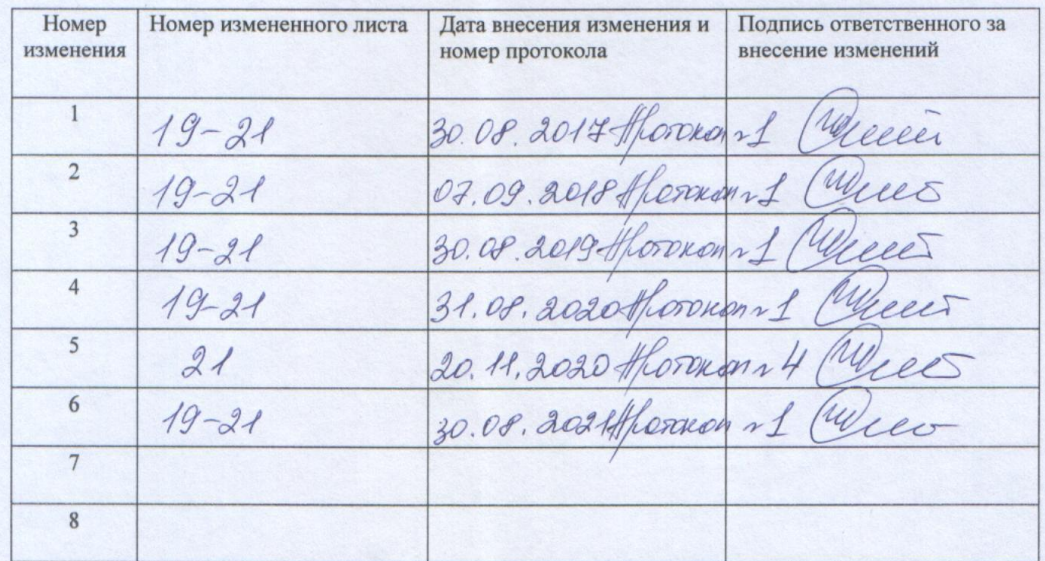 Номер изменения Номер измененного листа Дата внесения изменения и номер протокола Подпись ответственного за внесение изменений
1 19-21 30.08.2017 Протокол №1
2 19-21 07.09.2018 Протокол №1
3 19-21 30.08.2019 Протокол №1
4 19-21 31.08.2020 Протокол №1
5 21 20.11.2020 Протокол №4
6 19-21 30.08.2021 Протокол №1
7
8